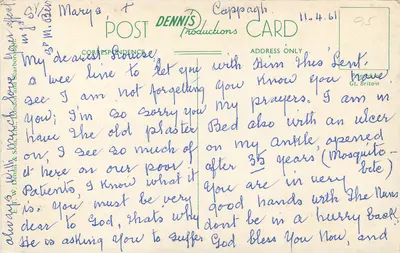 St Mary's, +
Cappagh
11.4.61
95
POST
DENNIS
Productions
CARD
CORRESPONDENCE
ADDRESS ONLY
My dearest
a wee line to let you
see I am not forgetting
you; I'm so sorry you
have the old plaster
on, I see so much of
it here on our poor
Patients, I know what it
is. You must be very
dear to God, that's why
He is asking You to suffer
with Him this Lent.
You know you have
my prayers. I am in
Bed also with an ulcer
on my ankle, opened
after 35 years (Mosquito-
bite)
You are in very
good hands with the Nuns
dont be in a hurry back,
God bless You Now, and
always, with much love your
Gt. Britain